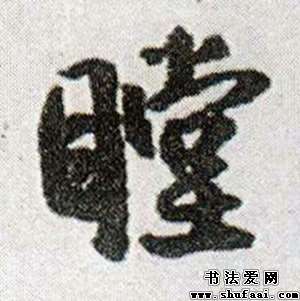 瞠
书法爱网
www.shufaai.com